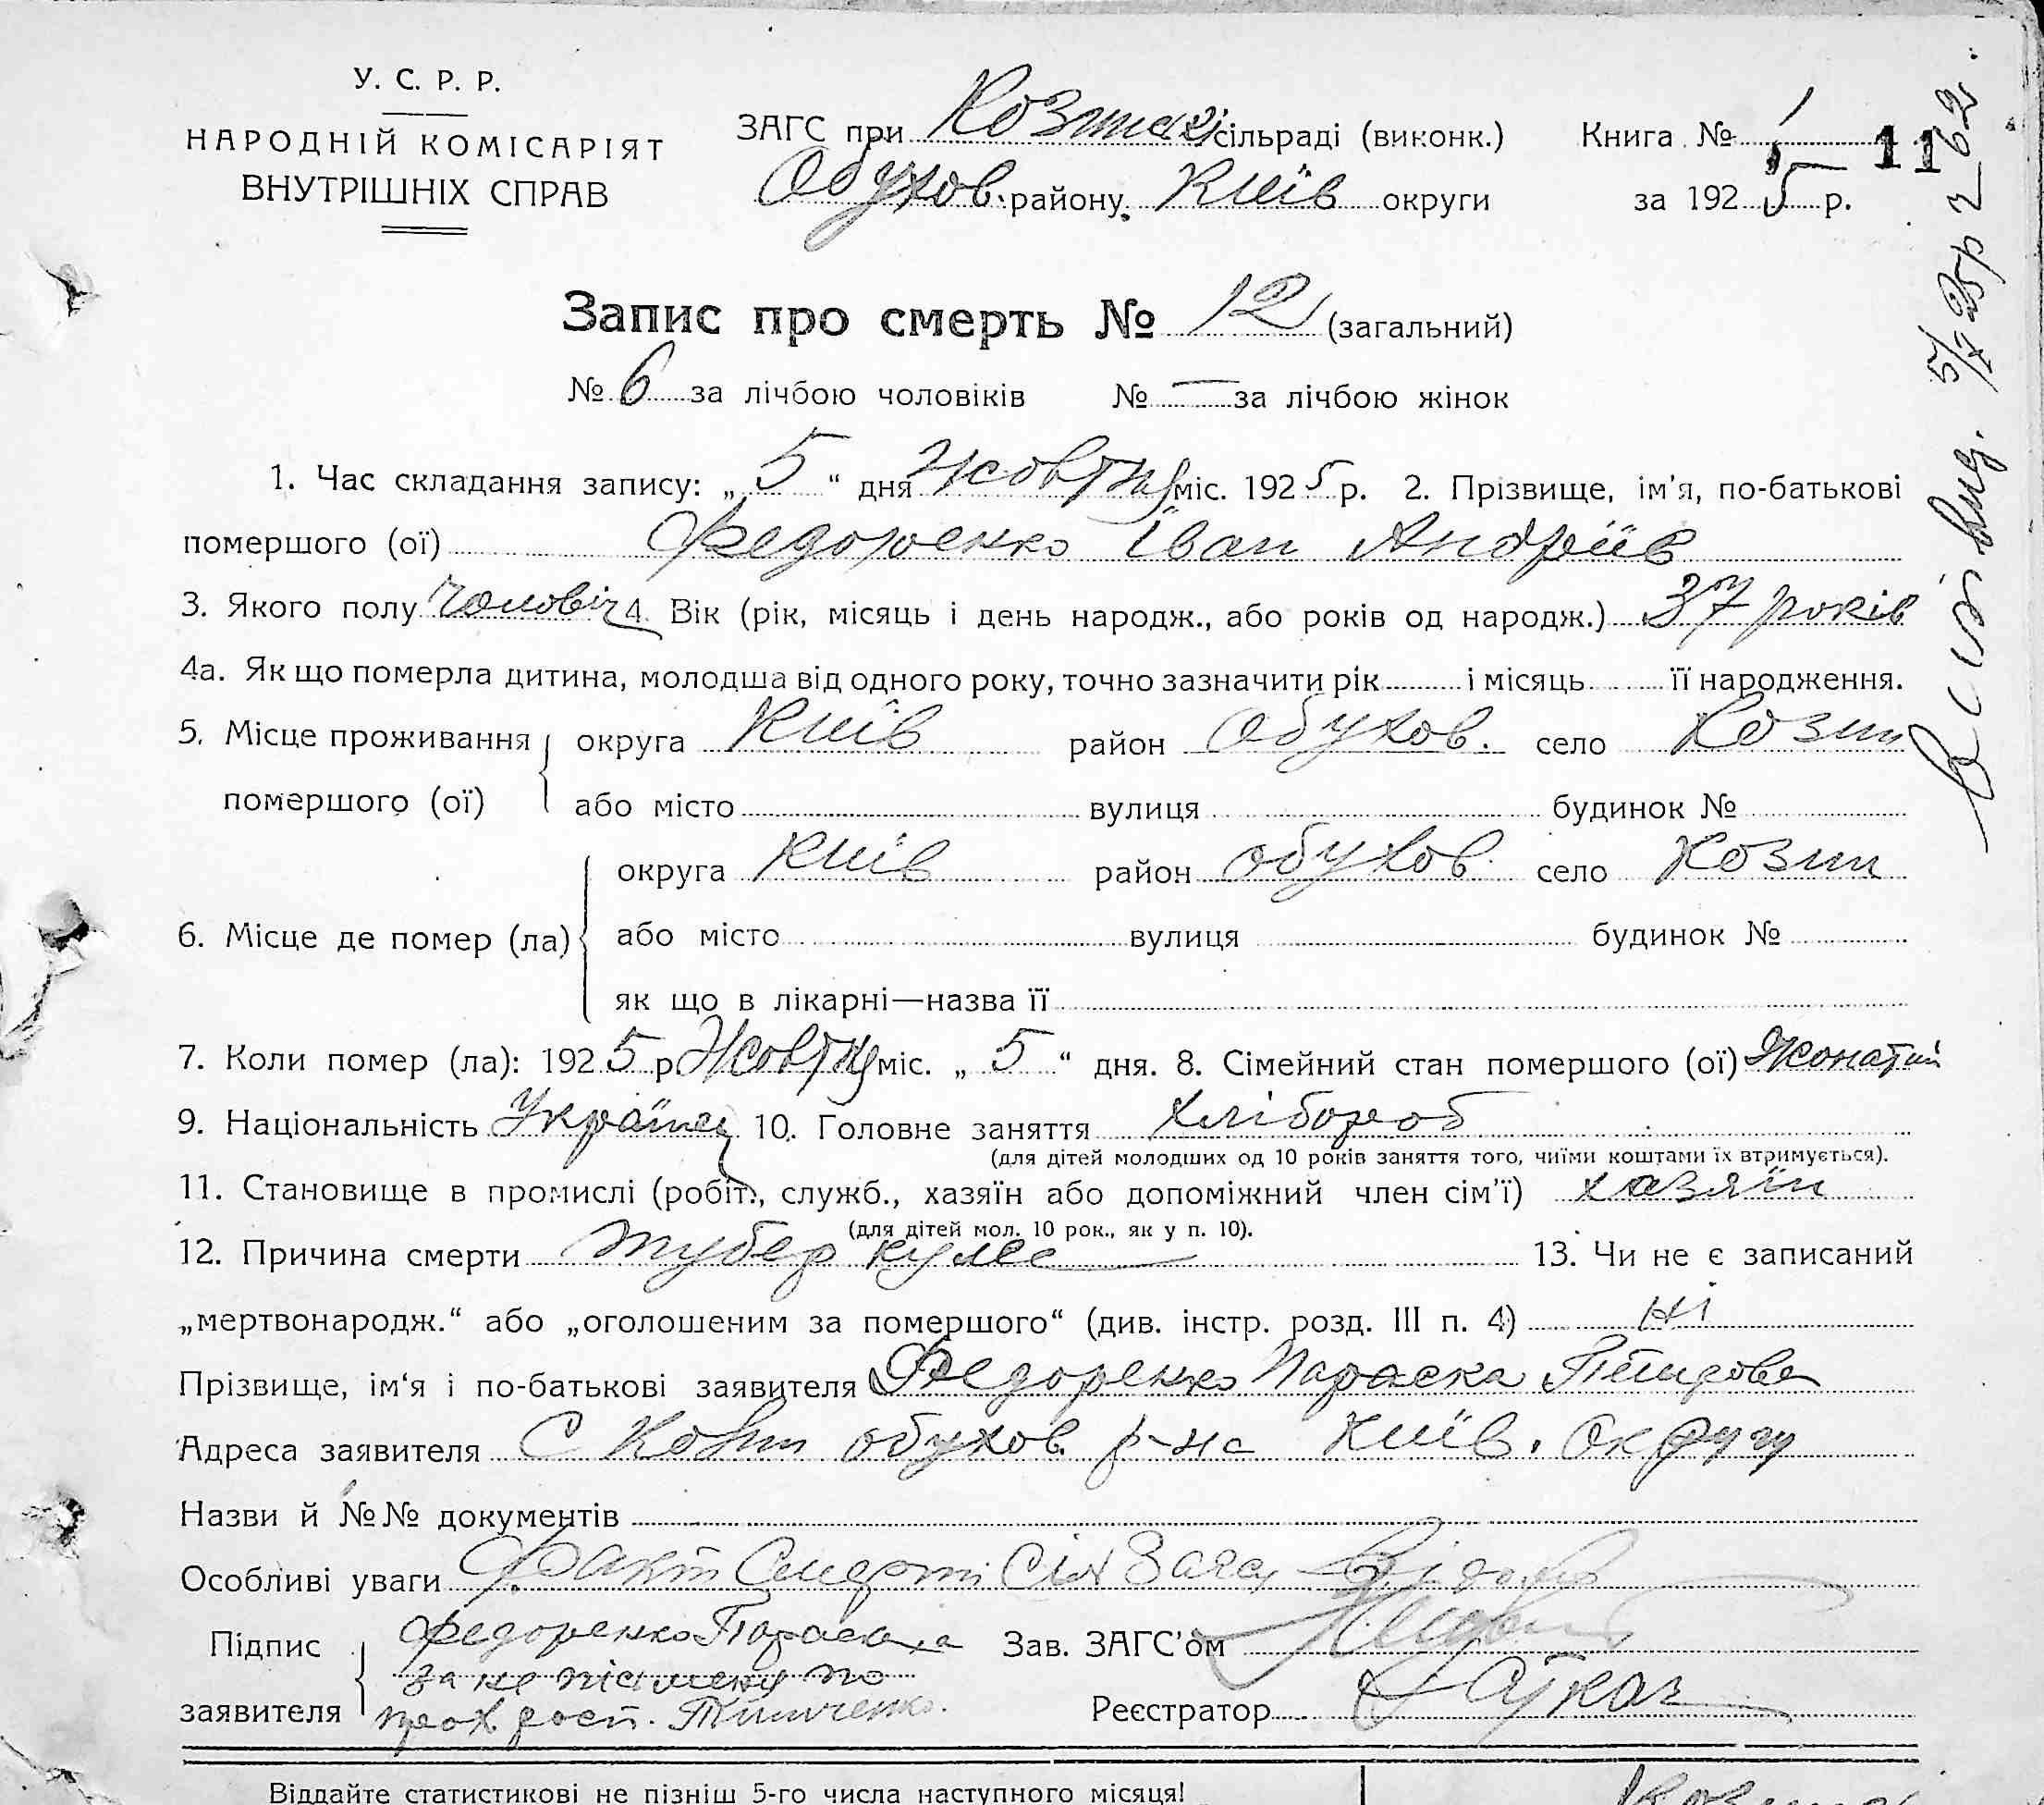 У. С. Р. Р.
НАРОДНІЙ КОМІСАРІЯТ
ВНУТРІШНІХ СПРАВ
ЗАГС при Козинській сільраді (виконк.)
Обухов. району Київ округи
Книга № 1
11
за 1925 р.
Запис про смерть № 12 (загальний)
№ 6 за лічбою чоловіків № — за лічбою жінок
1. Час складання запису: „5“ дня жовтня міс. 1925 р. 2. Прізвище, ім'я, по-батькові
помершого (ої) Федоренко Іван Андріїв
3. Якого полу чоловіч 4. Вік (рік, місяць і день народж., або років од народж.) 37 років
4а. Як що померла дитина, молодша від одного року, точно зазначити рік і місяць її народження.
5. Місце проживання помершого (ої) округа Київ район Обухов. село Козин
або місто вулиця будинок №
6. Місце де помер (ла) округа Київ район Обухов. село Козин
або місто вулиця будинок №
як що в лікарні—назва її
7. Коли помер (ла): 1925 р Жовтня міс. „5“ дня. 8. Сімейний стан помершого (ої) Жонатий
9. Національність Українец 10. Головне заняття хлібороб
(для дітей молодших од 10 років заняття того, чиїми коштами їх втримується).
11. Становище в промислі (робіт., служб., хазяїн або допоміжний член сім'ї) хазяїн
(для дітей мол. 10 рок., як у п. 10).
12. Причина смерти туберкулез 13. Чи не є записаний
„мертвонародж.“ або „оголошеним за помершого“ (див. інстр. розд. III п. 4) ні
Прізвище, ім'я і по-батькові заявителя Федоренко Параска
Адреса заявителя С Козин обухов. р-на Київ. Округу
Назви й №№ документів
Особливі уваги Факт Смерти
Підпис заявителя Федоренко Параска
за не письмену по
прох. росп. Тимченко.
Зав. ЗАГС'ом
Реєстратор
Віддайте статистикові не пізніш 5-го числа наступного місяця!